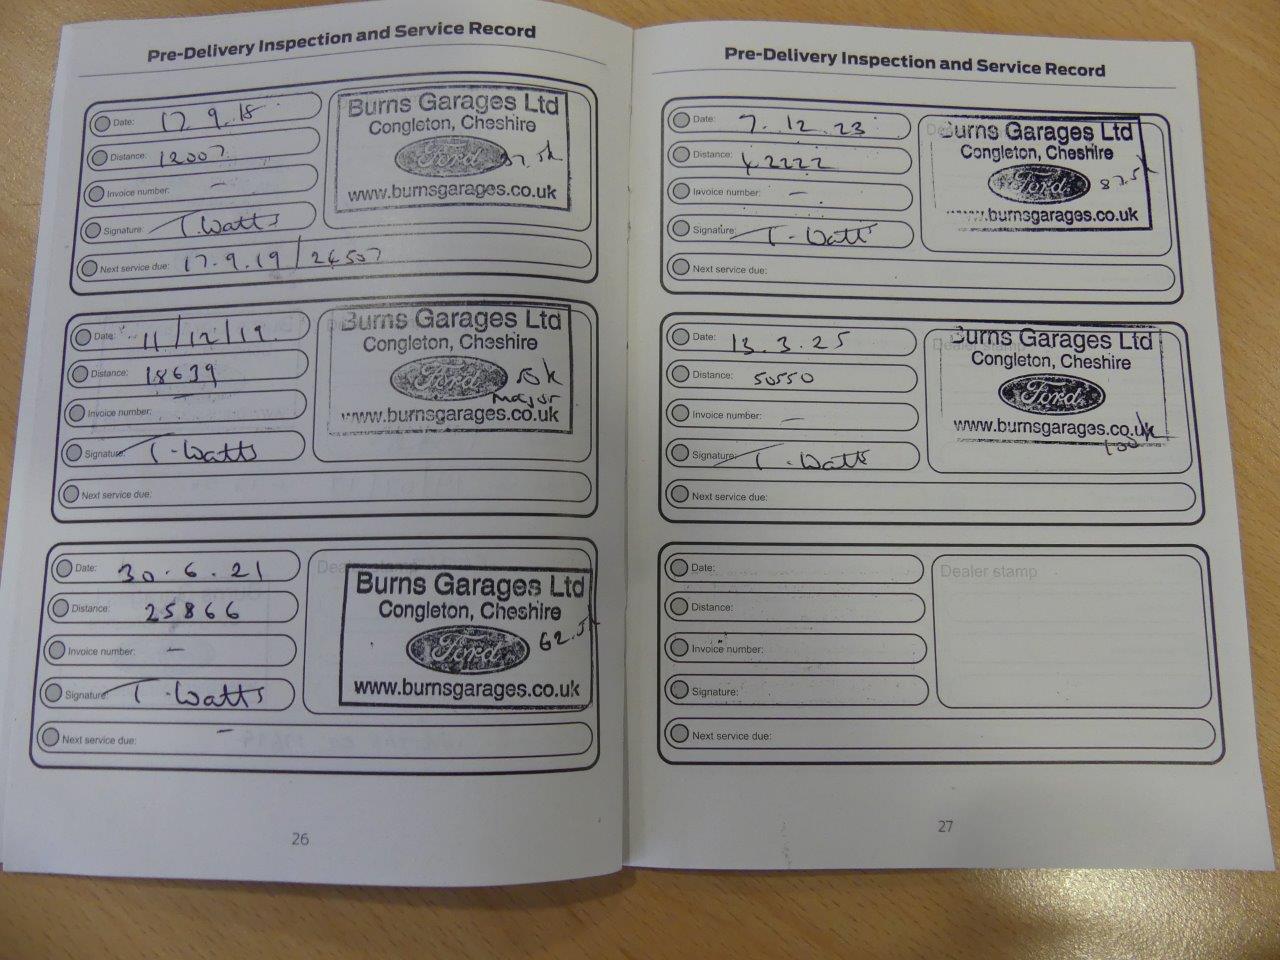 Pre-Delivery Inspection and Service Record
Date: 17.9.18
Distance: 12007
Invoice number: -
Signature: T. Watts
Next service due: 17.9.19 / 24507
Burns Garages Ltd
Congleton, Cheshire
Ford 37.5k
www.burnsgarages.co.uk
Date: 11/12/19.
Distance: 18639
Invoice number: -
Signature: T. Watts
Next service due:
Burns Garages Ltd
Congleton, Cheshire
Ford 50k
major
www.burnsgarages.co.uk
Date: 30.6.21
Distance: 25866
Invoice number: -
Signature: T. Watts
Next service due: -
Dealer stamp
Burns Garages Ltd
Congleton, Cheshire
Ford 62.5k
www.burnsgarages.co.uk
26
Pre-Delivery Inspection and Service Record
Date: 7.12.23
Distance: 42222
Invoice number: -
Signature: T. Watts
Next service due:
Burns Garages Ltd
Congleton, Cheshire
Ford 87.5k
www.burnsgarages.co.uk
Date: 13.3.25
Distance: 50550
Invoice number: -
Signature: T. Watts
Next service due:
Burns Garages Ltd
Congleton, Cheshire
Ford
www.burnsgarages.co.uk
100k
Date:
Distance:
Invoice number:
Signature:
Next service due:
Dealer stamp
27